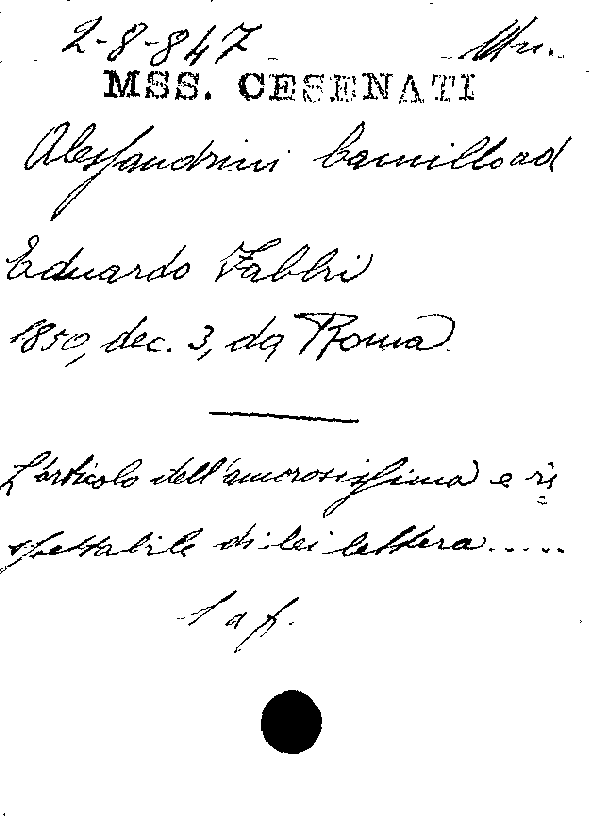 2-8-847
MSS. CESENATI
Alessandrini Camillo ad
Eduardo Fabbri
1850, dec. 3, da Roma
L'articolo dell'amorosissima e ri
spettabile di lei lettera.....
1 a f.